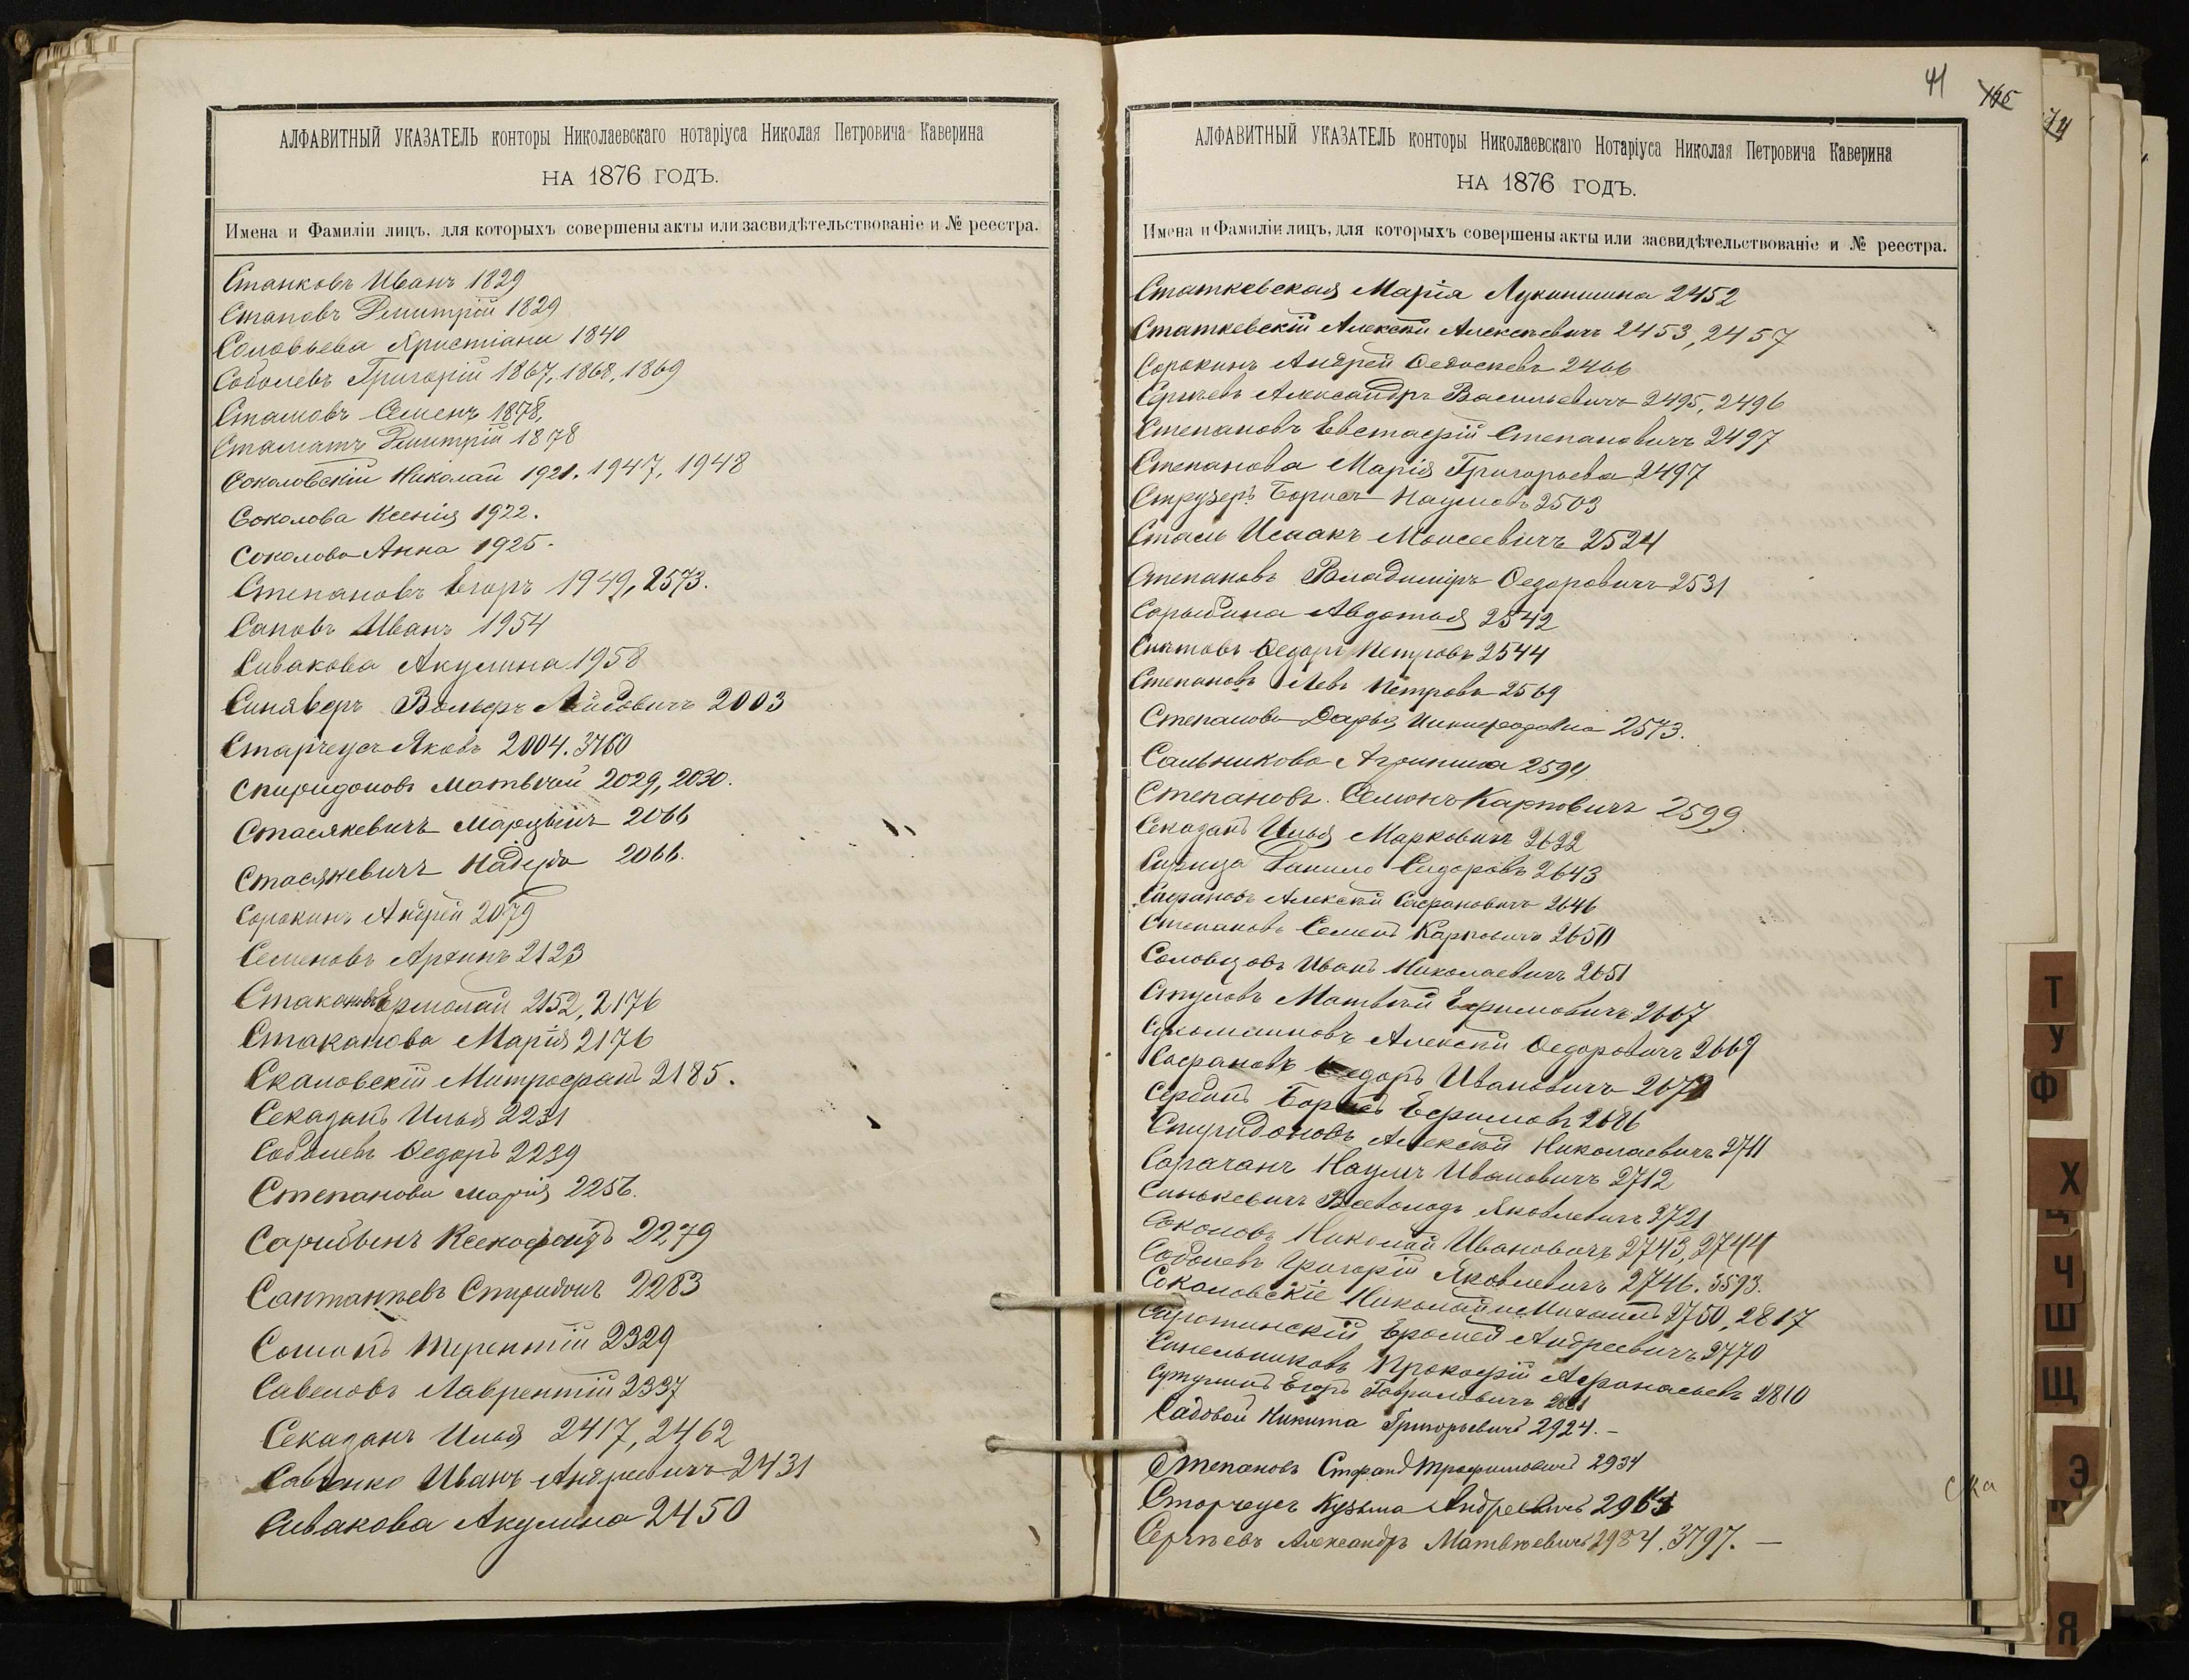 АЛФАВИТНЫЙ УКАЗАТЕЛЬ конторы Николаевскаго нотаріуса Николая Петровича Каверина
НА 1876 ГОДЪ.
Имена и Фамиліи лицъ, для которыхъ совершены акты или засвидѣтельствованіе и № реестра.
Станковъ Иванъ 1829
Стаповъ Дмитрій 1829
Соловьева Христіана 1840
Соболевъ Григорій 1867, 1868, 1869
Стамовъ Семенъ 1878,
Стаматъ Дмитрій 1878
Соколовскій Николай 1921. 1947, 1948
Соколова Ксенія 1922.
Соколова Анна 1925.
Степановъ Егоръ 1949, 2573.
Саповъ Иванъ 1954
Сивакова Акулина 1958
Синяверъ Вольфъ 2003
Старчеусъ Яковъ 2004. 3760
Спиридоновъ Матвѣй 2029, 2030.
Стасякевичъ Марцѣлъ 2066
Стасякевичъ 2066.
Сорокинъ Андрей 2079
Семеновъ Архипъ 2123
Стакановъ Ермолай 2152, 2176
Стаканова Марія 2176
Скаловскій Митрофанъ 2185.
Секазанъ Илья 2231
Соболевъ Ѳедоръ 2239
Степанова Марія 2256.
Сарибѣнъ Ксенофонтъ 2279
Сантантѣевъ Спиридонъ 2283
Терентій 2329
Савеловъ Лаврентій 2337
Секазанъ Илья 2417, 2462
Савченко Иванъ Андреевичъ 2431
Сивакова Акулина 2450
41
165
74
АЛФАВИТНЫЙ УКАЗАТЕЛЬ конторы Николаевскаго Нотаріуса Николая Петровича Каверина
НА 1876 ГОДЪ.
Имена и Фамиліи лицъ, для которыхъ совершены акты или засвидѣтельствованіе и № реестра.
Статкевская Марія Лукинишна 2452
Статкевскій Алексѣй Алексѣевичъ 2453, 2457
Сорокинъ Андрей Ѳедосѣевъ 2466
Сергѣевъ Александръ Васильевичъ 2495, 2496
Степановъ Евстафій Степановичъ 2497
Степанова Марія Григорьева 2497
Струзеръ Борисъ Наумовъ 2503
Сталь Исаакъ Моисеевичъ 2524
Степановъ Владиміръ Ѳедоровичъ 2531
Авдотья 2542
Ѳедоръ Петровъ 2544
Степановъ Левъ Петровъ 2569
Степанова Дарья Никифоровна 2573.
Сальникова Агрипина 2594
Степановъ Семенъ Карповичъ 2599
Секазанъ Илья Марковичъ 2622
Данило Сидоровъ 2643
Сафановъ Алексѣй Сафановичъ 2646
Степановъ Семенъ Карповичъ 2650
Соловцовъ Иванъ Николаевичъ 2651
Матвѣй Ефимовичъ 2667
Сухомлиновъ Алексѣй Ѳедоровичъ 2669
Сафановъ Ѳедоръ Ивановичъ
Сербинъ Борисъ Ефимовъ 2686
Спиридоновъ Алексѣй Николаевичъ 2711
Сарачанъ Наумъ Ивановичъ 2712
Синькевичъ Всеволодъ Яковлевичъ 2721
Соколовъ Николай Ивановичъ 2743, 2744
Соболевъ Григорій Яковлевичъ 2746. 3593.
Соколовскіе Николай и Михаилъ 2750, 2817
Сиротинскій Андреевичъ 2770
Синельниковъ Прокофій Афанасьевъ 2810
Егоръ Гавриловичъ
Садовой Никита Григорьевичъ 2924. —
Степановъ Стефанъ Трофимовичъ 2934
Сторчеусъ Кузьма Андреевичъ
Сергѣевъ Александръ Матвѣевичъ 2984. 3797. —
ска
Т
У
Ф
Х
Ц
Ч
Ш
Щ
Э
Я